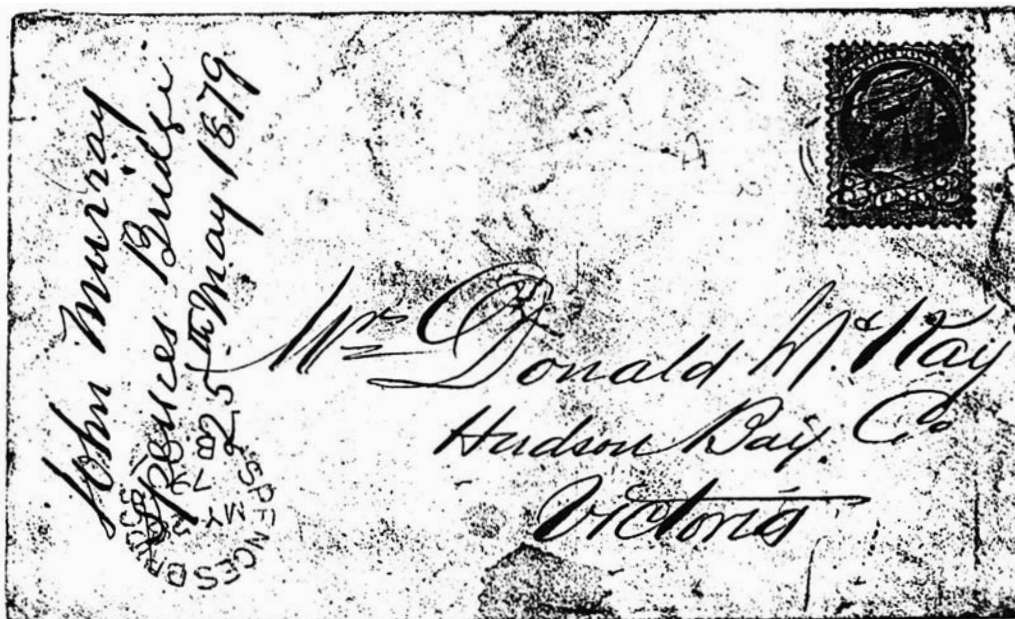 John Murray
Spences Bridge
25th May 1879
SPENCES BRIDGE
MY
79
Mr Donald McKay
Hudson Bay. Co
Victoria